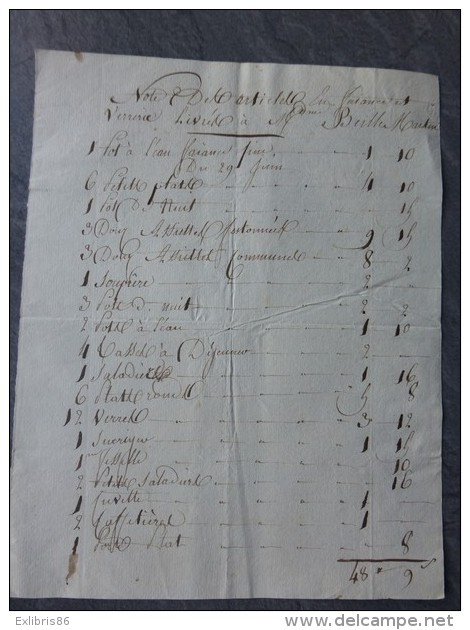 Note Des articles En faiance et
Verrerie Livrés à Md
1 Pot à l'eau faiance fine 1 10
Du 29 Juin
6 Petits plats 4 10
1 Pot De Nuit 15
3 Douz Assiettes 9 15
3 Douz Assiettes Communes 8 2
1 Soupiere 2
3 Pots De nuit 2 2
2 Pots à l'eau 1 10
4 Tasses à Déjeuner 2
1 Saladier 1 16
6 Plats ronds 5 8
12 Verres 3 12
1 Sucrier 1 15
1 10
2 Petits Saladiers 16
1 Cuvette 1
2 Caffetières 1
1 Porte 8
48 " 9 s
Exlibris86
www.delcampe.net